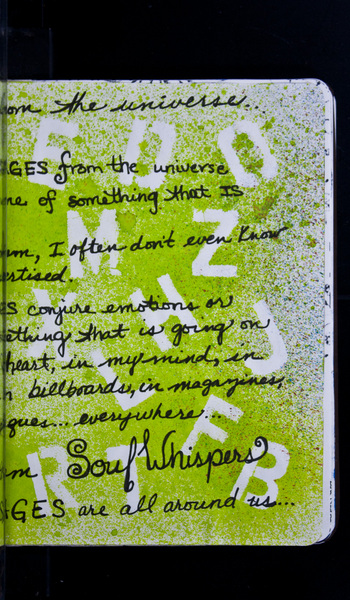 from the universe...
AGES from the universe
me of something that IS
mm, I often don't even know
ertised.
ES conjure emotions or
ething that is going on
heart, in my mind, in
n billboards, in magazines,
ques... everywhere...
om Soul Whispers
AGES are all around us...
E D O
M Z
H J
F
R T B